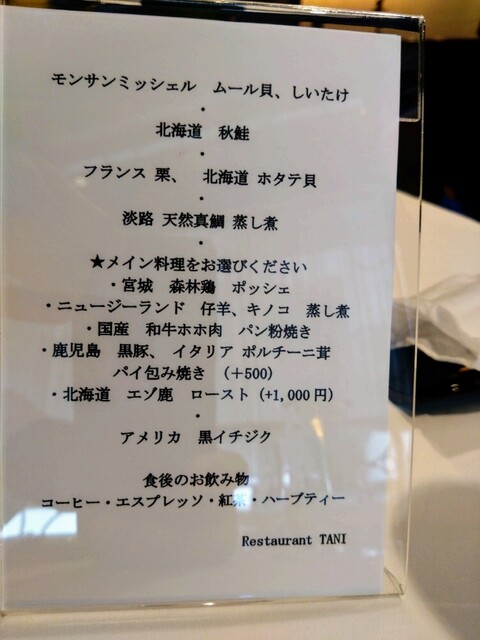 モンサンミッシェル　ムール貝、しいたけ
・
北海道　秋鮭
・
フランス 栗、　北海道 ホタテ貝
・
淡路 天然真鯛 蒸し煮
・
★メイン料理をお選びください
・宮城　森林鶏　ポッシェ
・ニュージーランド　仔羊、キノコ　蒸し煮
・国産　和牛ホホ肉　パン粉焼き
・鹿児島　黒豚、 イタリア ポルチーニ茸
パイ包み焼き　（＋500）
・北海道　エゾ鹿　ロースト（+1,000 円）
・
アメリカ　黒イチジク
食後のお飲み物
コーヒー・エスプレッソ・紅茶・ハーブティー
Restaurant TANI